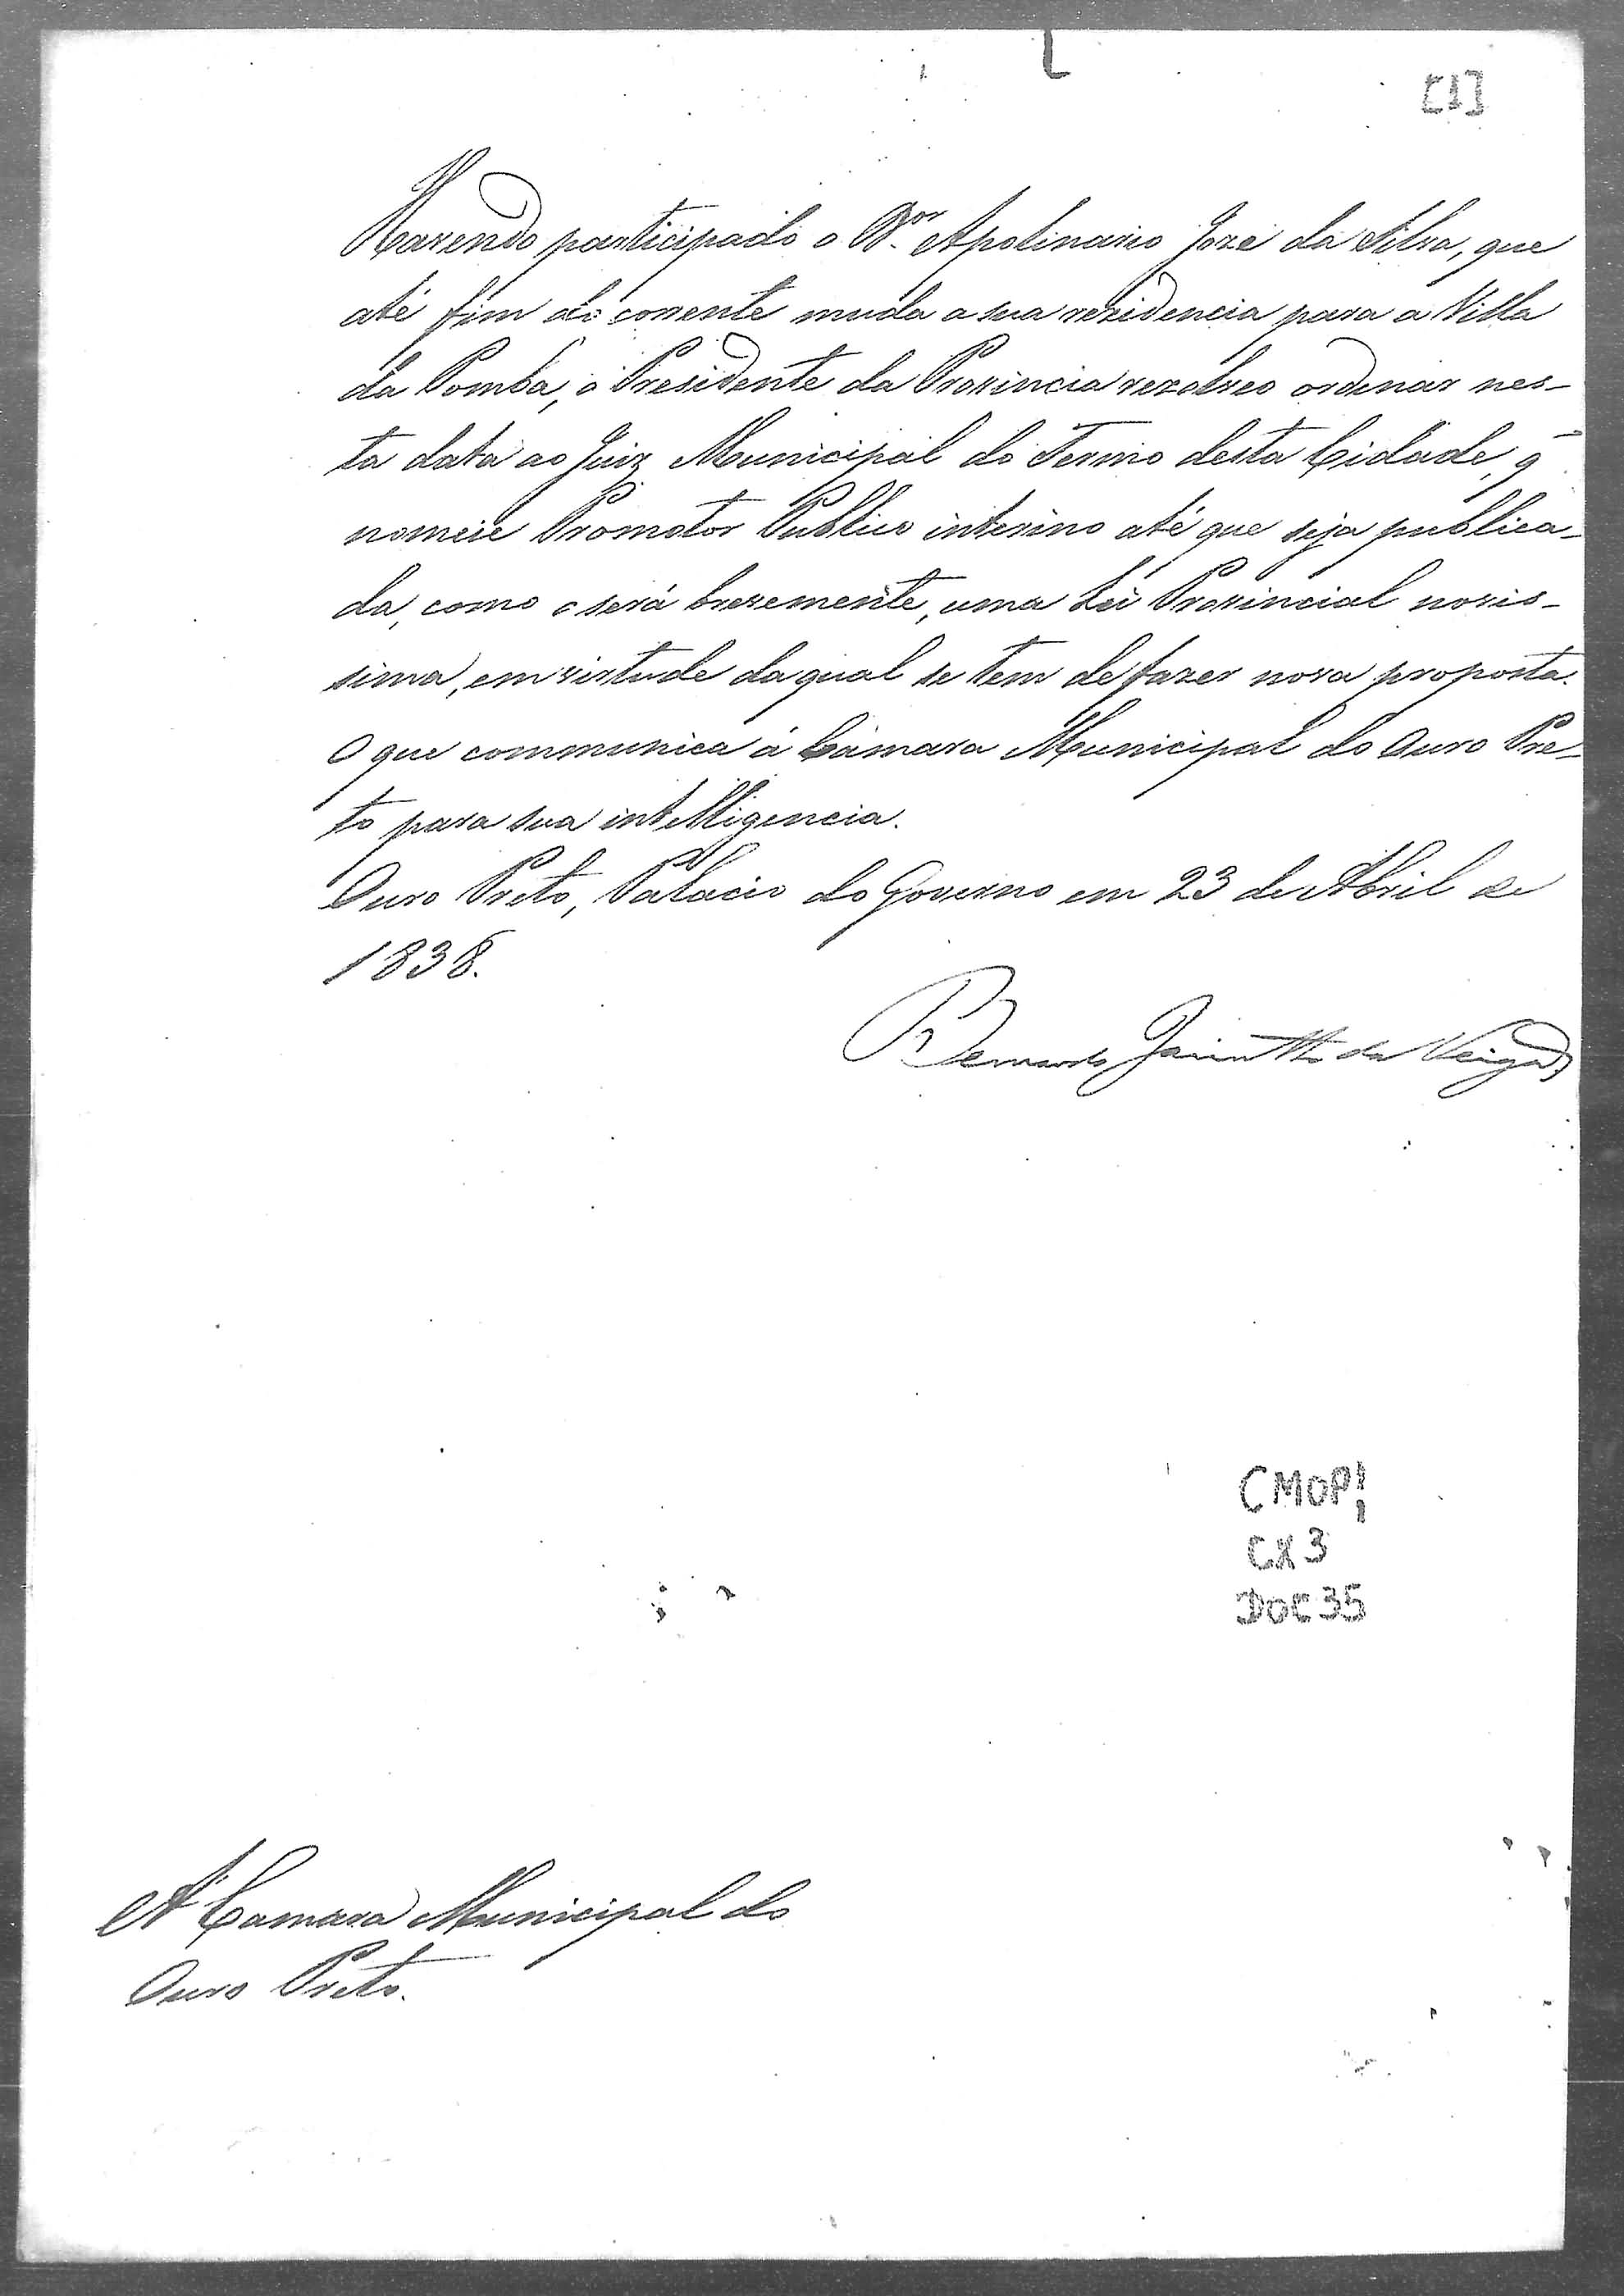 [1]
Havendo participado o Dor Apolinario Joze da Silva, que
até fim do corrente muda a sua rezidencia para a Villa
da Pomba, o Presidente da Provincia rezolveo ordenar nes-
ta data ao Juiz Municipal do Termo desta Cidade, q̃
nomeie Promotor Publico interino até que seja publica-
da, como o será brevemente, uma Lei Provincial novis-
sima, em virtude da qual se tem de fazer nova proposta.
O que communica á Câmara Municipal do Ouro Pre-
to para sua intelligencia.
Ouro Preto, Palacio do Governo em 23 de Abril de
1838.
Bernardo Jacintho da Veiga
CMOP
CX 3
DOC 35
A' Camara Municipal do
Ouro Preto.